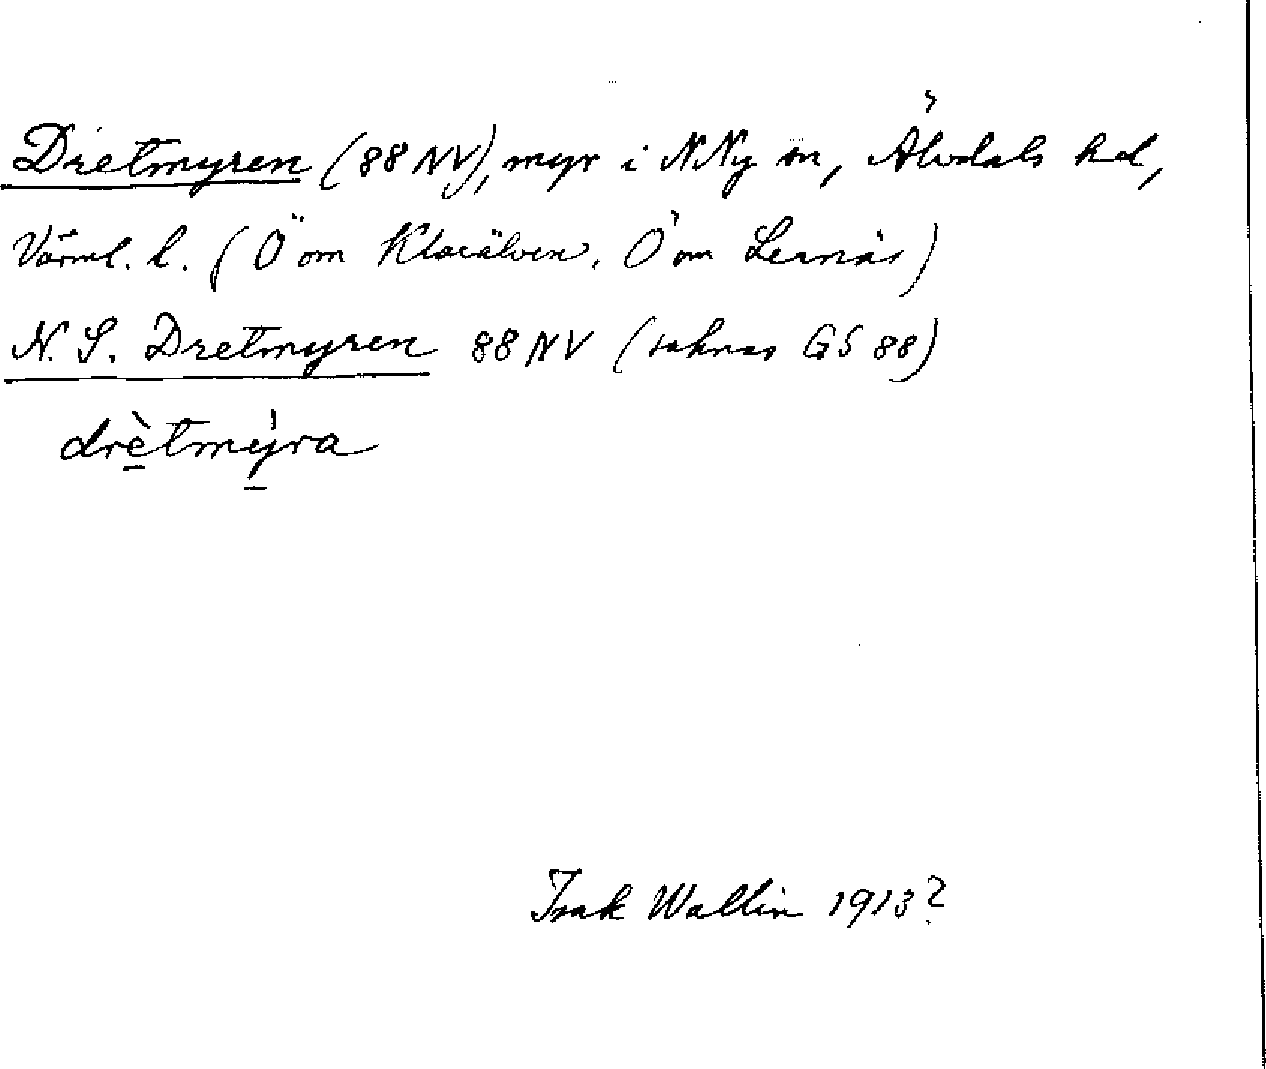 Dretmyren (88 NV), myr i N Ny sn, Älvdals hd,
Värml. l. (Ö om Klarälven, Ö om Lernäs)
N. S. Dretmyren 88 NV (saknas GS 88)
drètmy̍ra
Isak Wallin 1913?